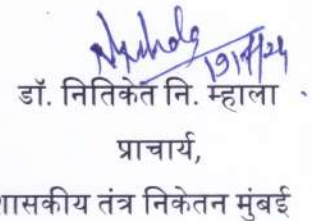 19/7/24
डॉ. नितिकेत नि. म्हाला
प्राचार्य,
शासकीय तंत्र निकेतन मुंबई